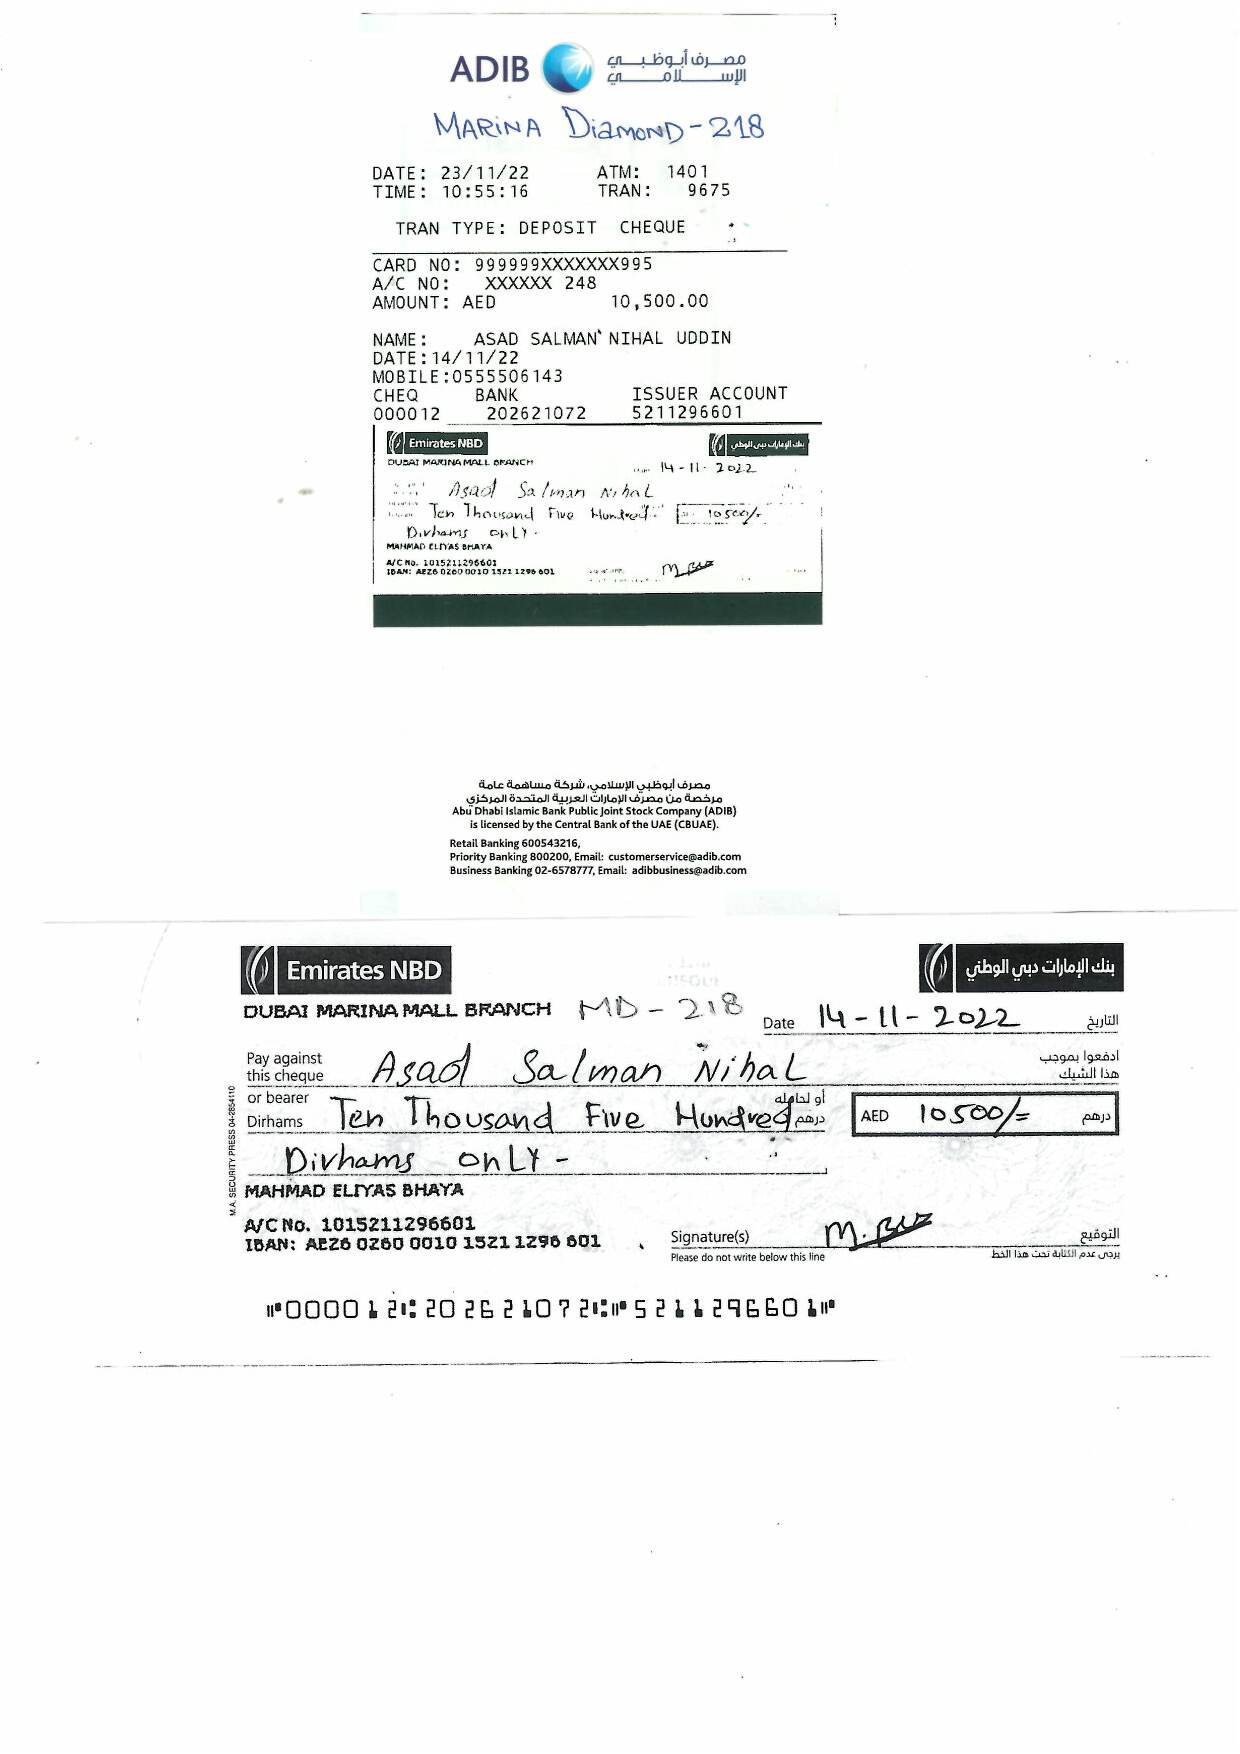 ADIB مصرف أبوظبي الإسلامي
MARINA Diamond-218
DATE: 23/11/22 ATM: 1401
TIME: 10:55:16 TRAN: 9675
TRAN TYPE: DEPOSIT CHEQUE
CARD NO: 999999XXXXXXX995
A/C NO: XXXXXX 248
AMOUNT: AED 10,500.00
NAME: ASAD SALMAN NIHAL UDDIN
DATE:14/11/22
MOBILE:0555506143
CHEQ BANK ISSUER ACCOUNT
000012 202621072 5211296601
Emirates NBD بنك الإمارات دبي الوطني
DUBAI MARINA MALL BRANCH 14-11-2022
Asad Salman Nihal
Ten Thousand Five Hundred 10500/-
Dirhams onLY-
MAHMAD ELIYAS BHAYA
A/C No. 1015211296601
IBAN: AE26 0260 0010 1521 1296 601
مصرف أبوظبي الإسلامي، شركة مساهمة عامة
مرخصة من مصرف الإمارات العربية المتحدة المركزي
Abu Dhabi Islamic Bank Public Joint Stock Company (ADIB)
is licensed by the Central Bank of the UAE (CBUAE).
Retail Banking 600543216,
Priority Banking 800200, Email: customerservice@adib.com
Business Banking 02-6578777, Email: adibbusiness@adib.com
Emirates NBD بنك الإمارات دبي الوطني
DUBAI MARINA MALL BRANCH MD-218 Date 14-11-2022 التاريخ
Pay against this cheque Asad Salman Nihal ادفعوا بموجب هذا الشيك
or bearer أو لحامله
Dirhams Ten Thousand Five Hundred درهم AED 10500/= درهم
Dirhams onLY-
MAHMAD ELIYAS BHAYA
A/C No. 1015211296601
IBAN: AE26 0260 0010 1521 1296 601
Signature(s) التوقيع
Please do not write below this line يرجى عدم الكتابة تحت هذا الخط
M.A. SECURITY PRESS 04-2854110
⑈000012⑆202621072⑆⑈5211296601⑈